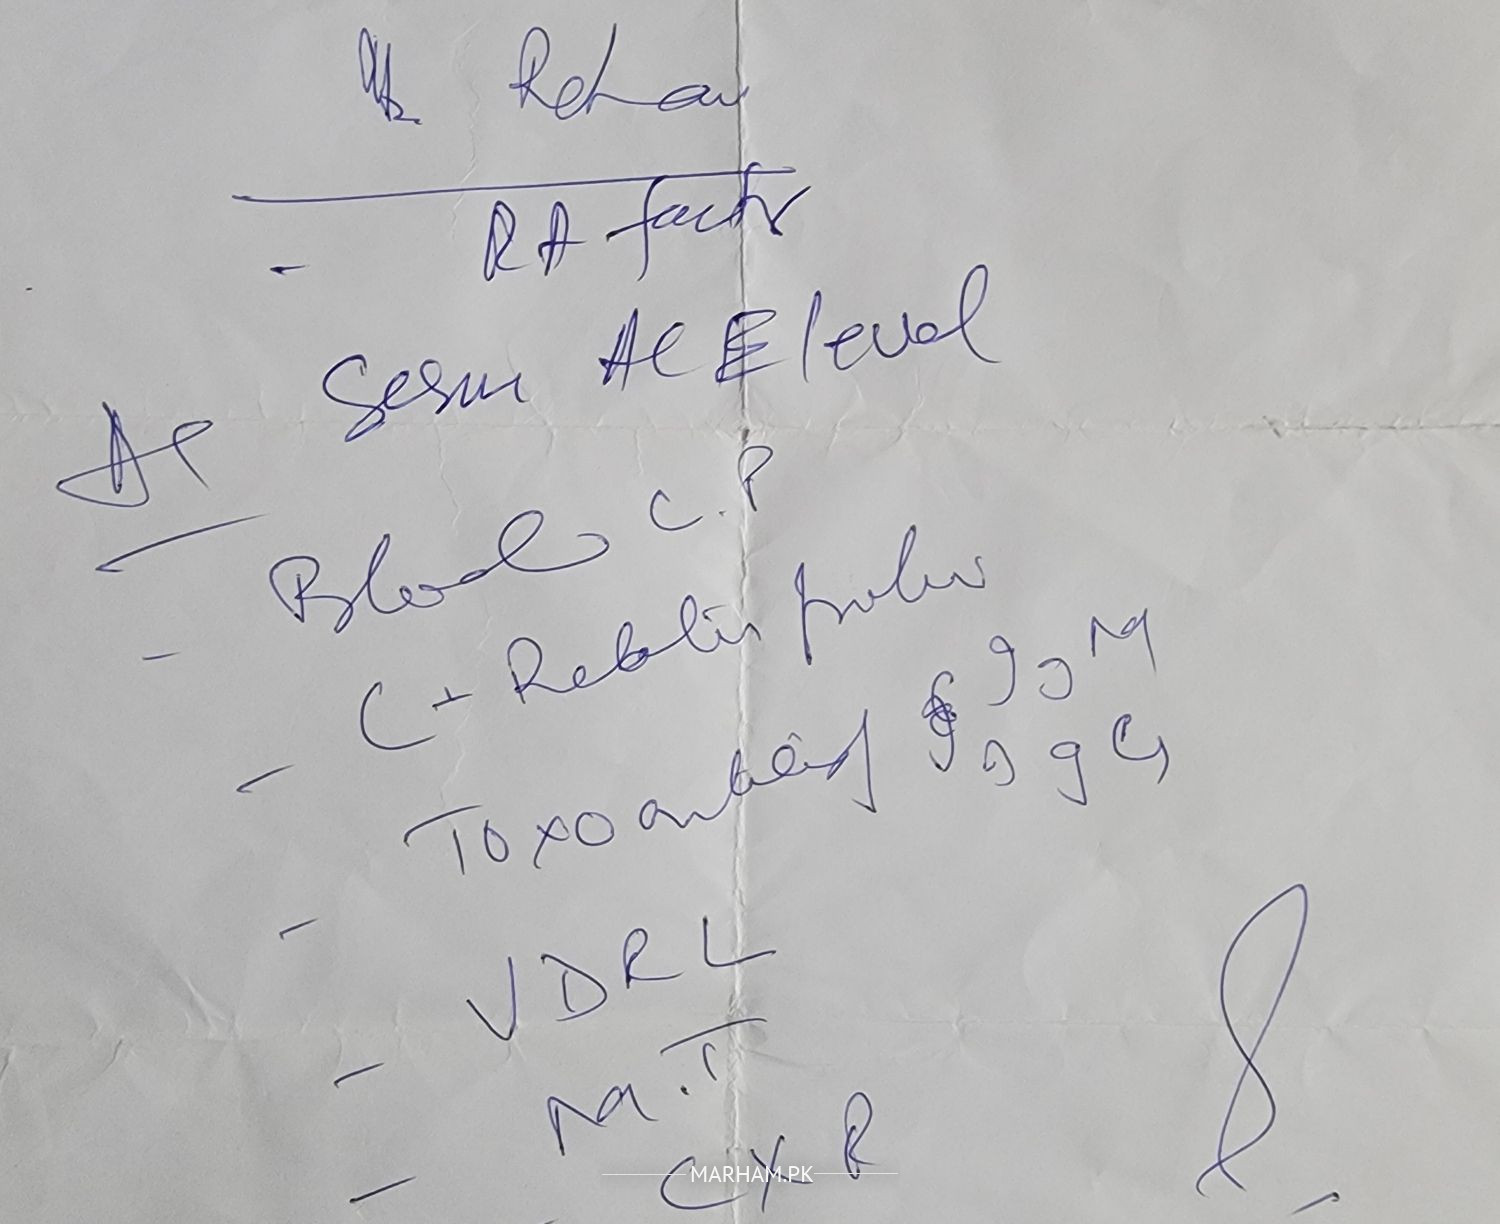 Mr Rehan
- RA factor
Serum ACE level
Adv
- Blood C.P
- C-Reactive protein
- Toxo antibody IgM
IgG
- VDRL
- M.T
- CX-R
MARHAM.PK